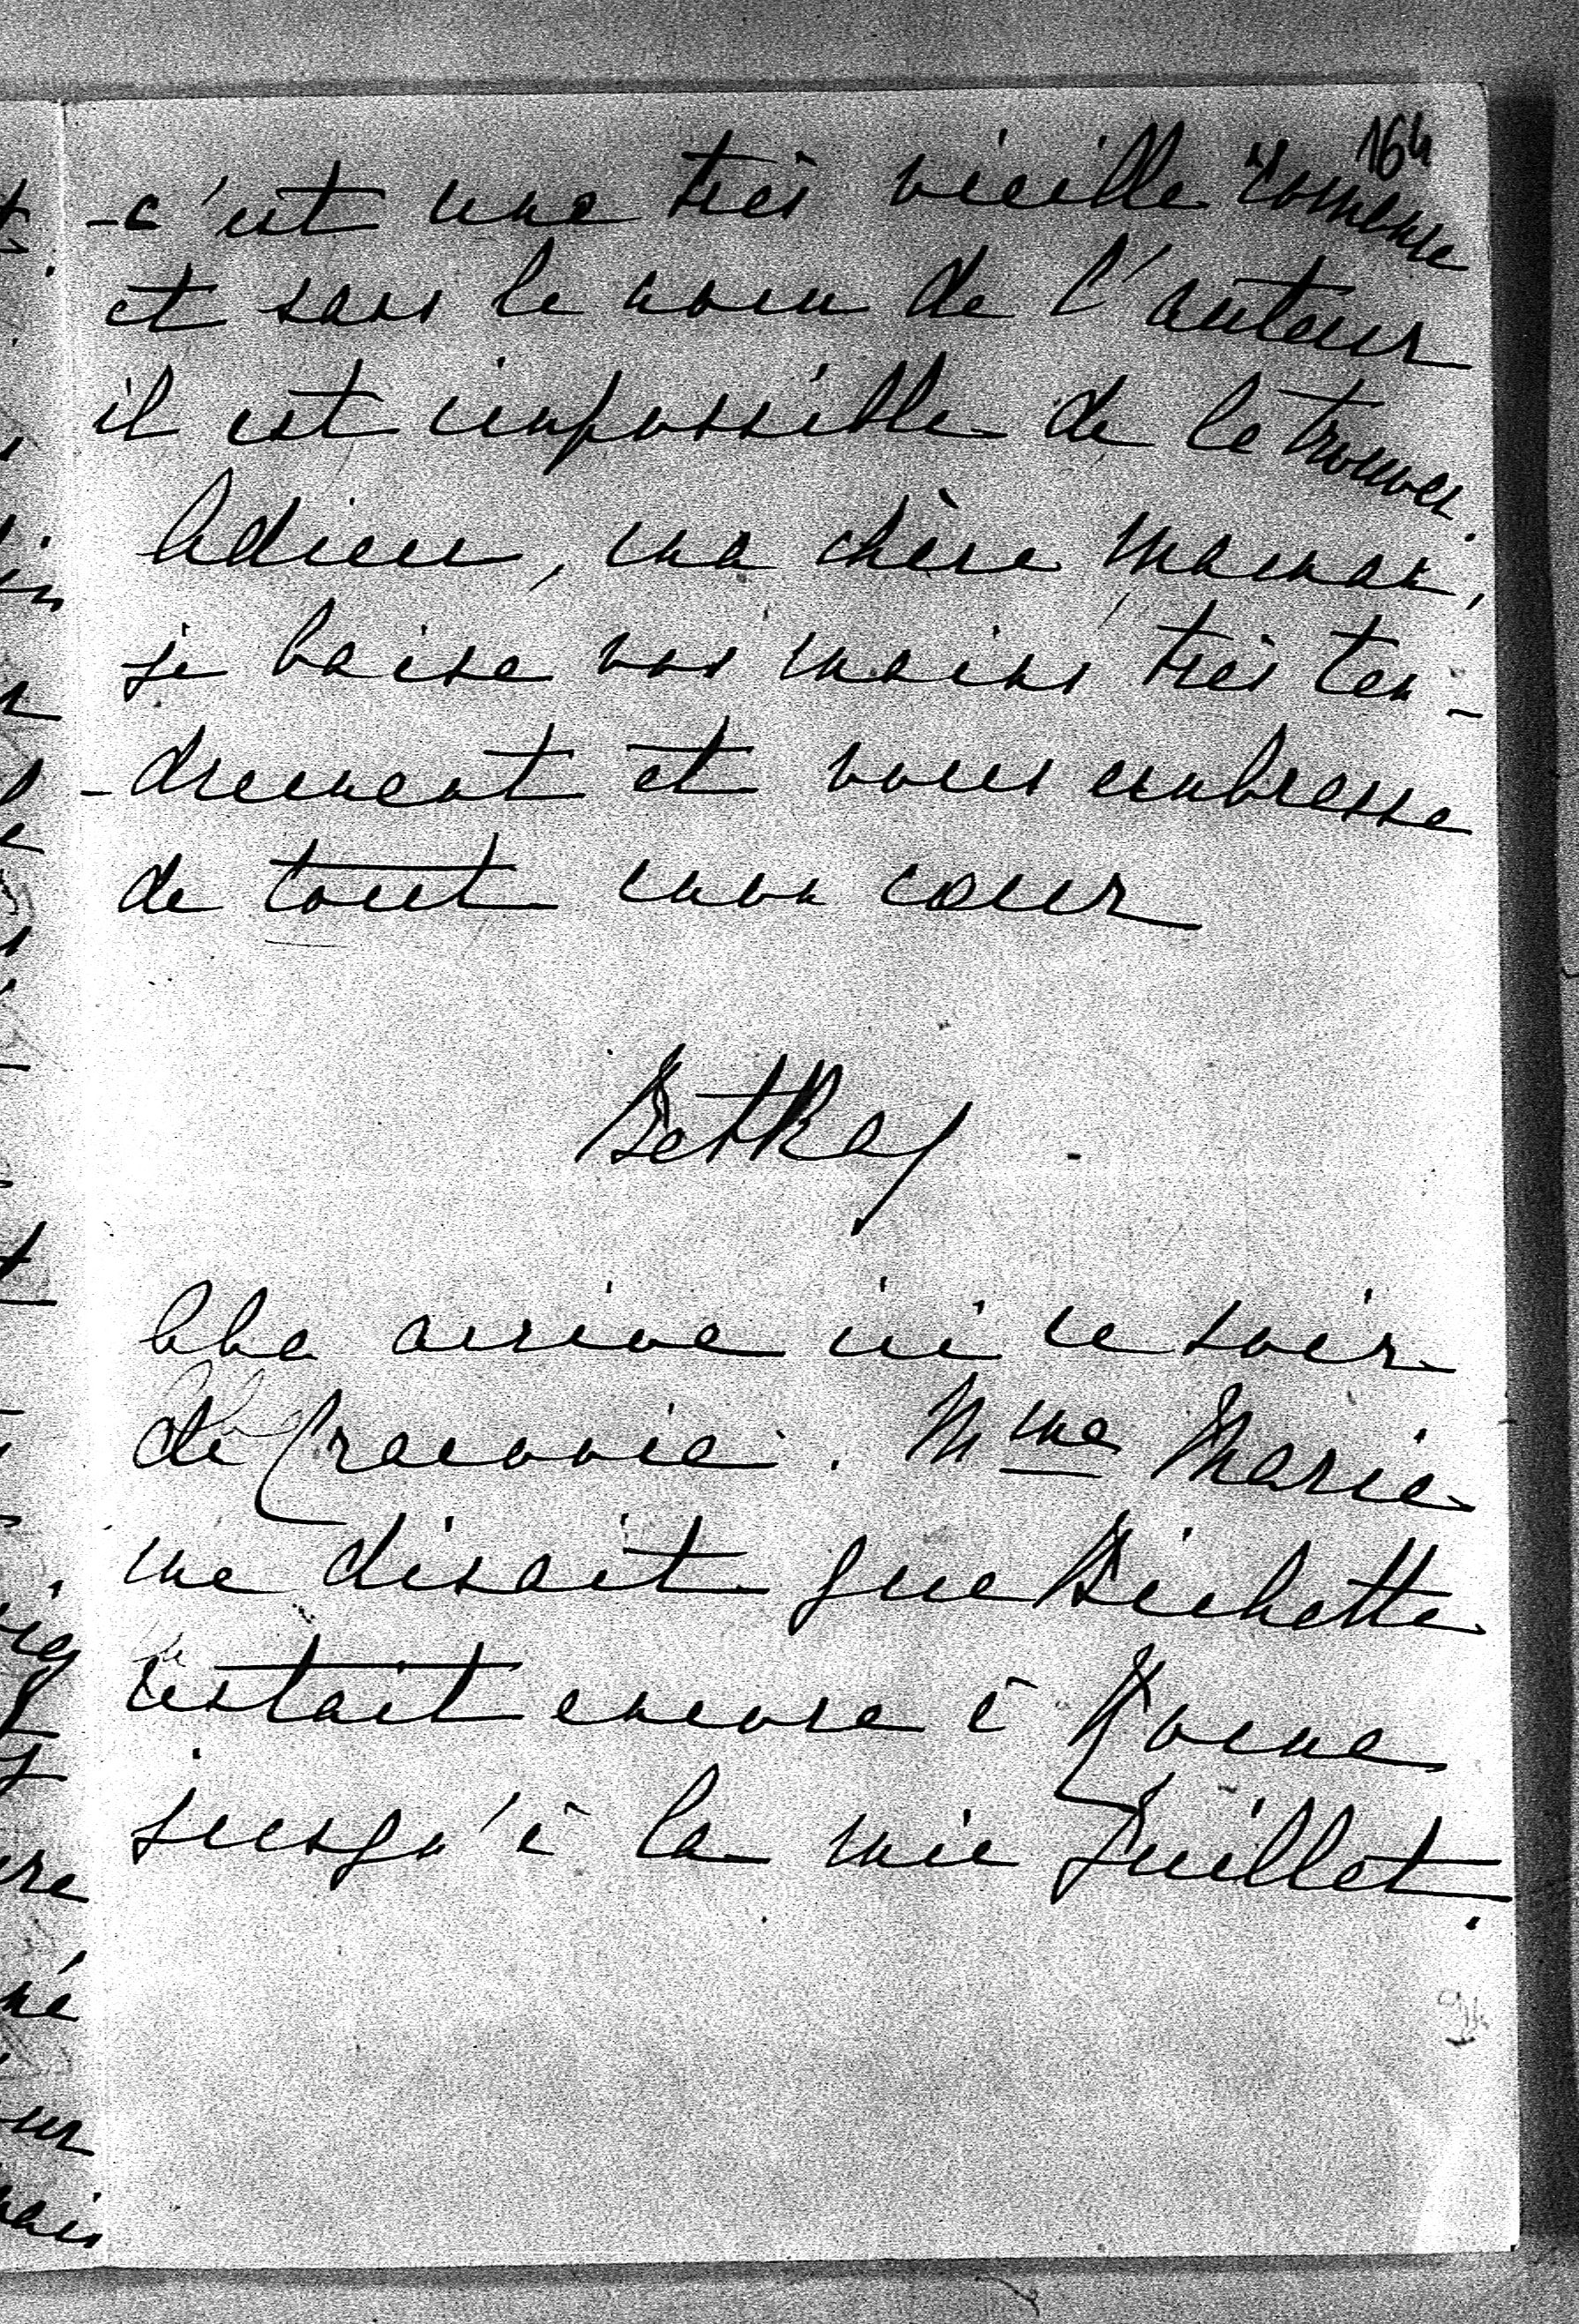 164
-c'est une très vieille romance
et sans le nom de l'auteur
il est impossible de le trouver.
Adieu, ma chère maman,
je baise vos mains très ten-
-drement et vous embrasse
de tout mon coeur
Betka
Aba arrive ici ce soir
de Cracovie. Mme Marie
me disait que Bichette
restait encore à Rome
jusqu'à la mie Juillet.